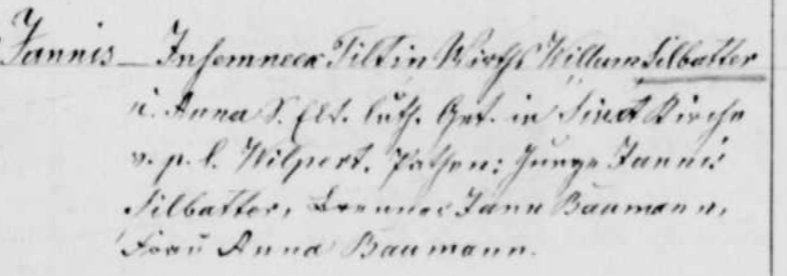 Jannis – Tiltin Wirths Willum Silbatter
u. Anna d. Elt. luth. Get. in Kirche
v. p. l. Wilpert. Pathen: Junge Jannis
Silbatter, Jann Baumann,
Frau Anna Baumann.